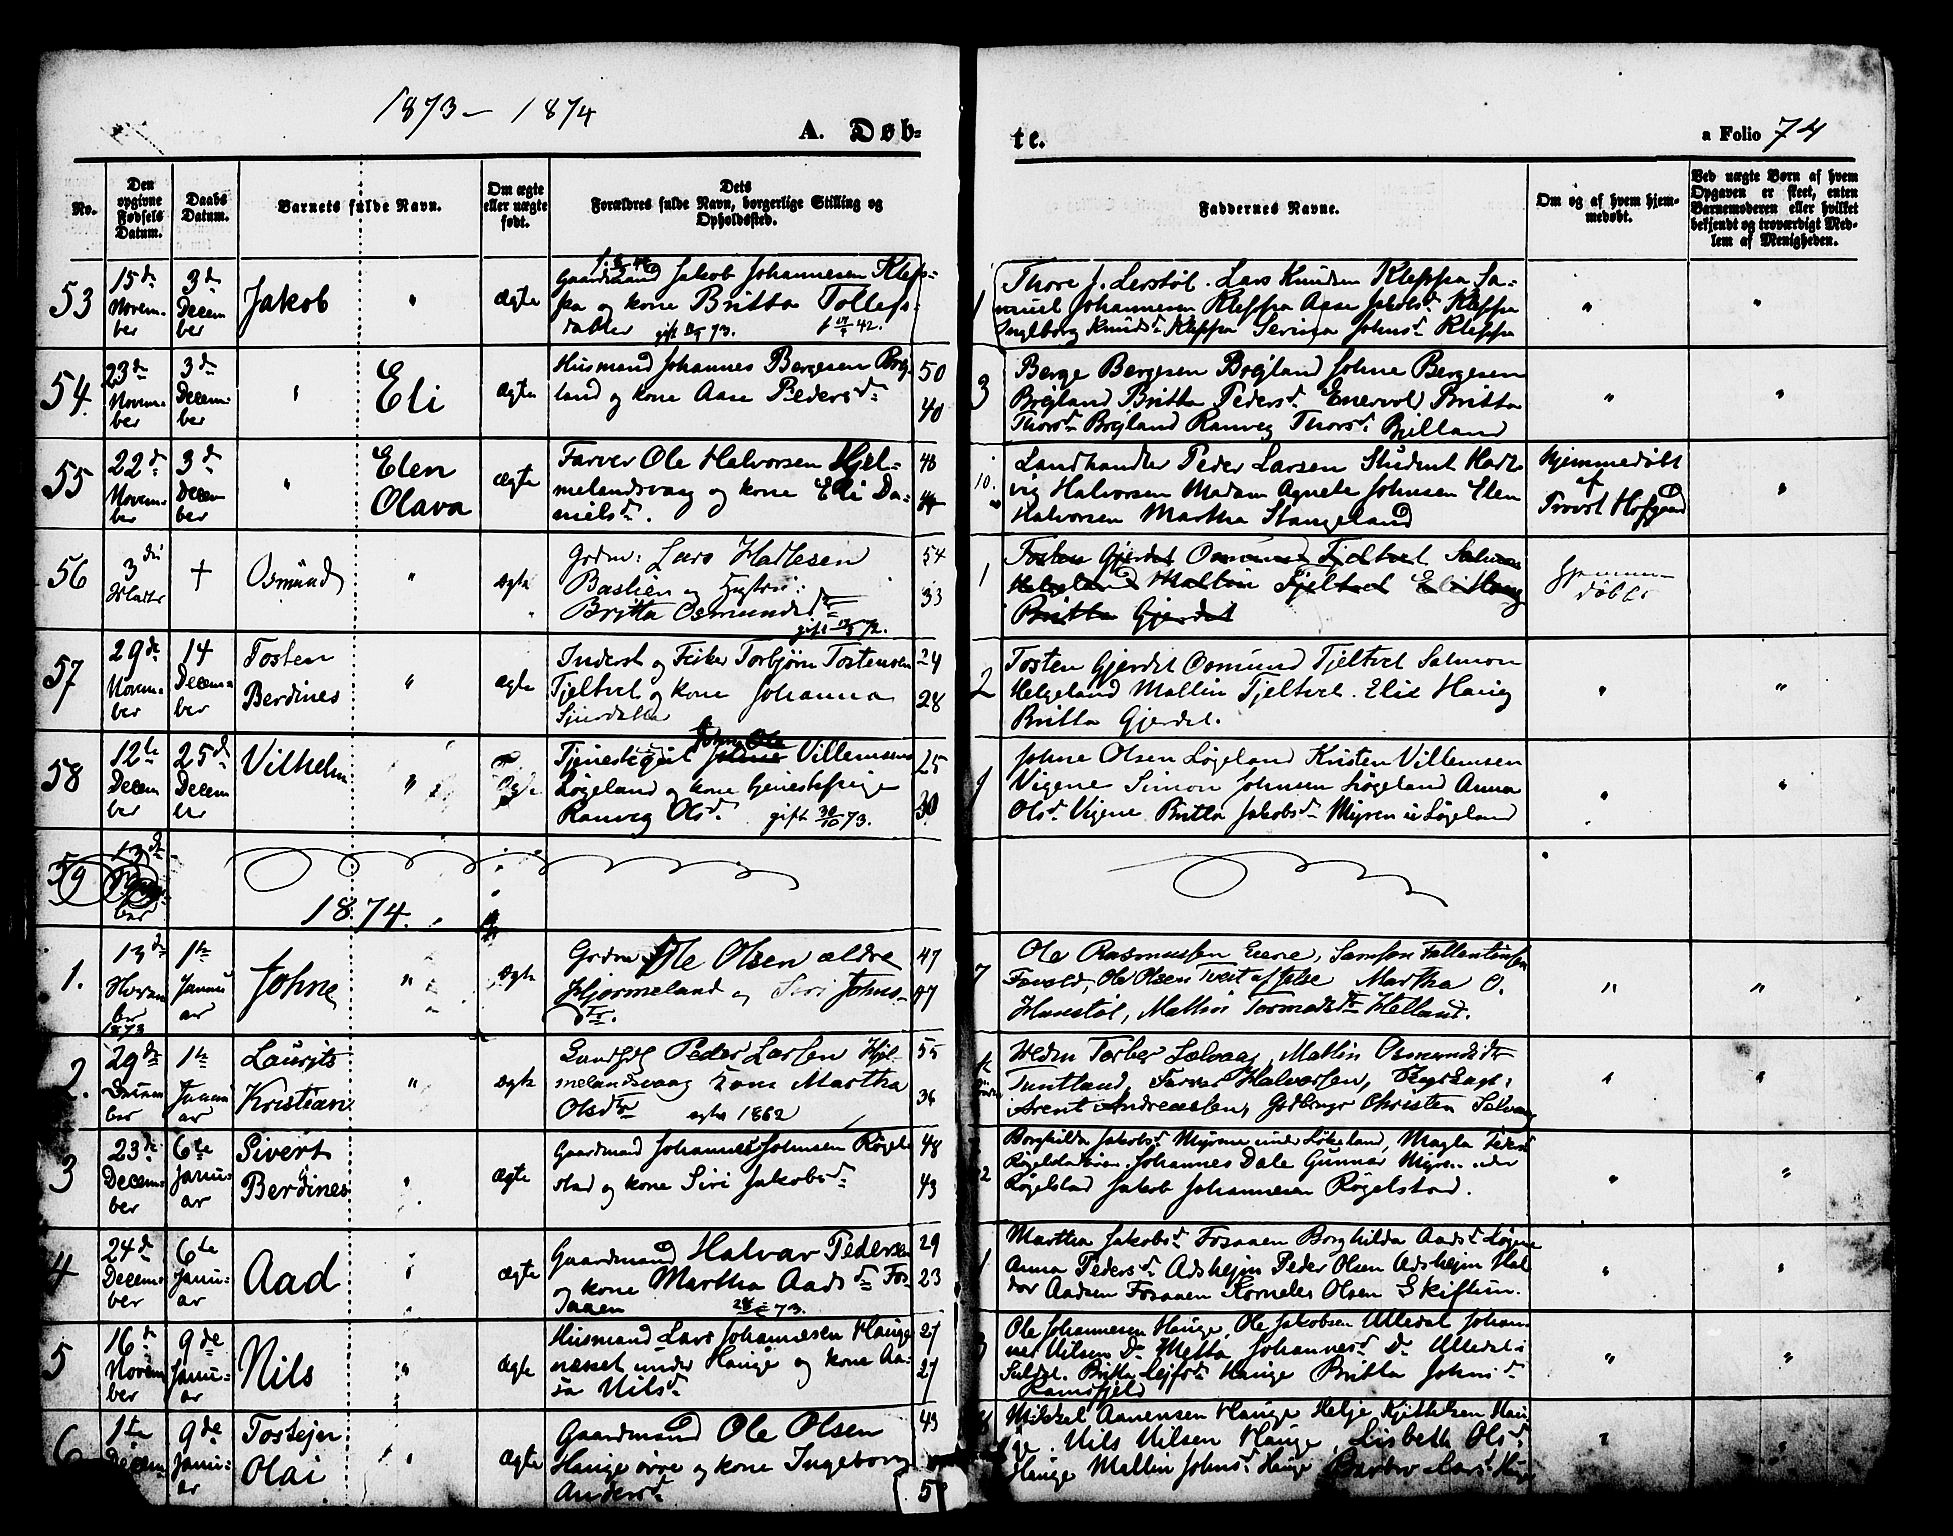 1873 - 1874
A. Døb-
te.
a Folio 74
No.
Den
opgivne
Fødsels
Datum.
Daabs
Datum.
Barnets fulde Navn.
Om ægte
eller uægte
født.
Dets
Forældres fulde Navn, borgerlige Stilling og
Opholdssted.
Faddernes Navne.
Om og af hvem hjem-
medøbt.
Ved uægte Børn af hvem
Opgaven er skeet, enten
Barnemoderen eller hvilket
bekjendt og troværdigt Med-
lem af Menigheden.
53
15de
Novem-
ber
3de
Decem
ber
Jakob "
ægte
Gaardmand Jakob Johannesen Klep-
pa og kone Britta Tollefs-
datter gift 73. f 42.
1
Thore J. Lerstøl. Lars Knudsen Kleppa Sa-
muel Johannesen Kleppa Aase Jakobsd. Kleppa
Ingeborg Knudsd. Kleppa Serina Johnsd. Kleppa
"
"
54.
23de
Novem-
ber
3de
Decem-
ber
" Eli
ægte
Husmand Johannes Bergesen
land og kone Aase Pedersd.
50
40
3
Berge Bergesen Johne Bergesen
Britta Pedersd. Britta
Thorsd. Ranveg Thorsd.
"
"
55
22de
Novem-
ber
3de
Decem
ber
" Elen
Olava
ægte
Farver Ole Halvorsen Hjel-
melandsvaag og kone Eli Da-
nielsd.
48
10.
Landhandler Peder Larsen Student Hart-
vig Halvorsen Madam Agnete Johnsen Elen
Halvorsen Martha Stangeland
Hjemmedøbt
af
Provst Hofgaard
"
56
3die
†
Osmund "
ægte
Grdm: Lars Hadlesen
Bastlien og Hustru:
Britta Osmundsdtr
54
33
1
Tosten Gjerdet Osmund Tjeltvet Salmon
Helgeland Mallin Tjeltvet Elis Haug
Britta Gjerdet
Hjemme-
døbt
57
29de
Novem-
ber
14
Decem-
ber
Tosten
Berdines "
ægte
Inderst og Fisker Torbjørn Tostensen
Tjeltvet og kone Johanna
gift 72.
24
28
2
Tosten Gjerdet Osmund Tjeltvet Salmon
Helgeland Mallin Tjeltvet. Elis Haug
Britta Gjerdet.
"
"
58
12te
Decem
ber
25de
Decem
ber
Vilhelm "
Ægte
Tjenestegut John Ole Villemsen
Løgeland og kone tjenestepige
Ranveg Olsd. gift 30/10 73.
25
30
1
Johne Olsen Løgeland Kristen Villemsen
Vigene Simon Johnsen Løgeland Anna
Olsd. Vigene Britta Jakobsd. Myren u Løgeland
"
"
59
13de
ber
1874.
1.
13de
Novem
ber
1873
1te
Janu
ar
Johne "
ægte
Grdm Ole Olsen ældre
Hjørmeland og Siri Johns-
dtr.
47
47
7
Ole Rasmussen Eiene, Samson Fallentinsen
Ole Olsen Tveit Martha O.
Husstøl, Mallin Tormodsdtr Helland.
"
"
2.
29de
Decem
ber
1te
Janu
ar
Laurits
Kristian "
ægte
Landhdl Peder Larsen Hjel-
melandsvaag Kone Martha
Olsdtr ægtev 1862
55
36
Torber Selvaag, Mallin Osmundsdtr
Tuntland, Farver Halvorsen,
Arent Andreassen, Christen Selvaag
"
"
3
23de
Decem-
ber
6te
Janu-
ar
Sivert
Berdines "
ægte
Gaardmand Johannes Johnsen Røgel-
stad og kone Siri Jakobsd.
48
43
2
Borghilda Jakobsd. Myrene under Løkeland, Magla Pedersd.
Johannes Dale Gunnar Myren under
Røgelstad Jakob Johannesen Røgelstad.
"
"
4
24de
Decem-
ber
6te
Janu-
ar
Aad "
ægte
Gaardmand Halvar Pedersen
og kone Martha Aadsd. Fos-
saaen 73.
29
23
1
Martha Jakobsd. Fossaaen Borghilda Aadsd.
Anna Pedersd. Adshejm Peder Olsen Adshejm Hal
dor Aadsen Fosaaen Korneles Olsen Skiftun.
"
"
5
16de
Novem
ber
9de
Janu-
ar
Nils "
ægte
Husmand Lars Johannesen Hauge
næsset under Hauge og kone Aa-
sa Nilsd.
27
27
3
Ole Johannesen Hauge, Ole Jakobsen Ulledal Johan-
nes Nilsen Do Metta Johannesd. Do Ulledal i
Suldal. Britta Hauge Britta Johnsd.
Ramsfjeld
"
"
6
1te
Decem-
ber
9de
Janu-
ar
Tostejn
Olai "
ægte
Gaardmand Ole Olsen
Hauge øvre og kone Ingeborg
Andersd.
43
Mikkel Aanensen Hauge Helje Kjittelsen Hau-
ge. Nils Nilsen Hauge, Lisbeth Olsd.
Hauge Mallin Johnsd. Hauge Barbro Larsd. Hauge
"
"
5